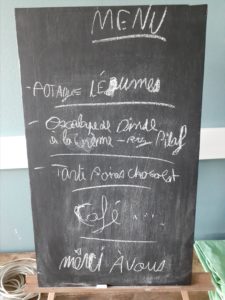 MENU
- POTAGE LÉGUMES
- Escalope de Dinde
à la Crème - riz Pilaf
- Tarte Poires chocolat
Café ...
mérci À vous